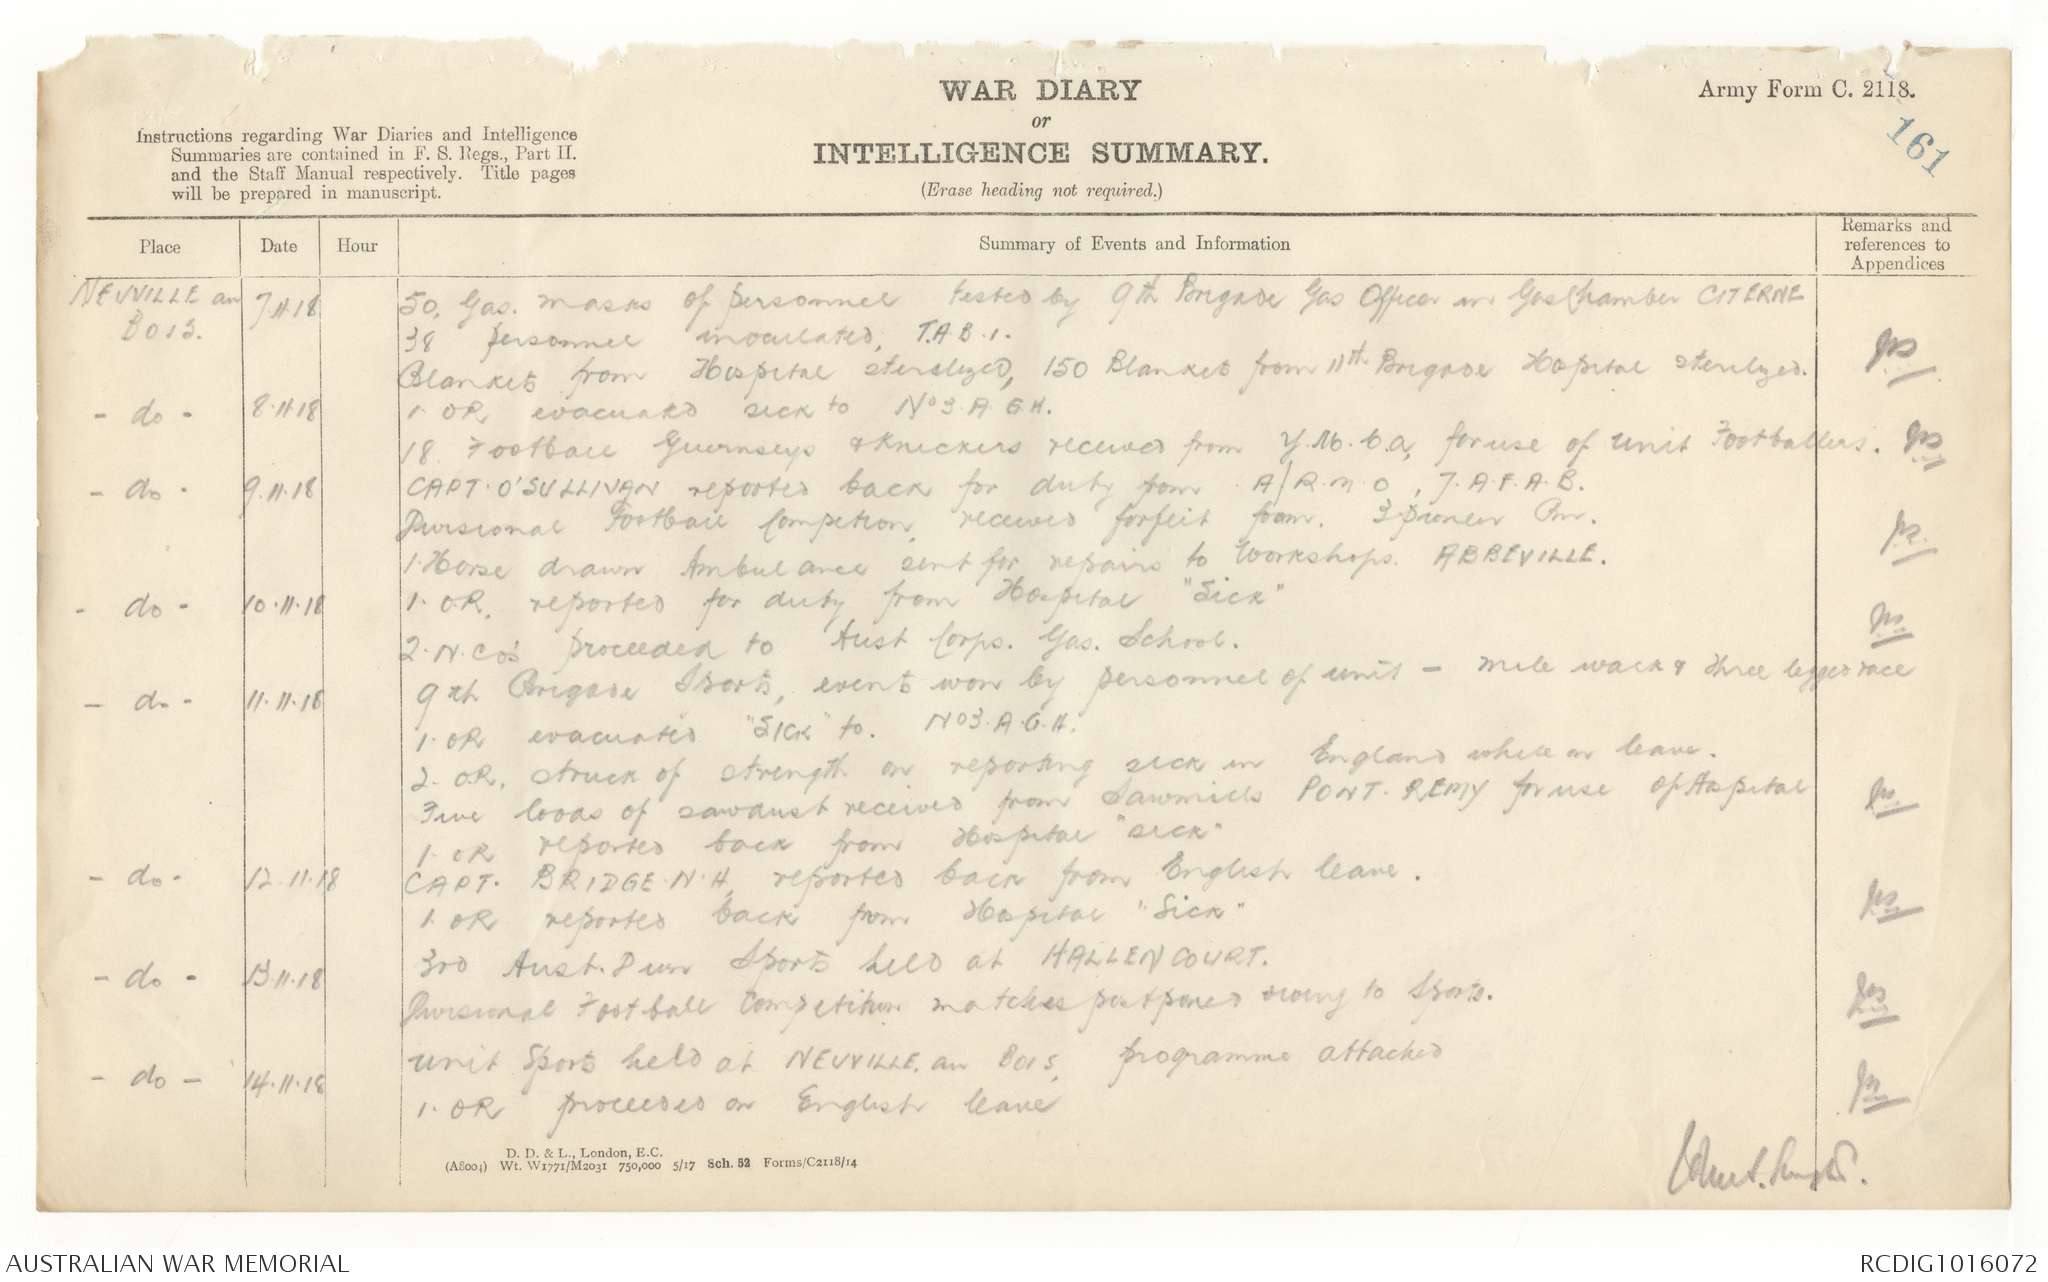 WAR DIARY
or
INTELLIGENCE SUMMARY.
(Erase heading not required.)
Army Form C. 2118.
161
Instructions regarding War Diaries and Intelligence
Summaries are contained in F. S. Regs., Part II.
and the Staff Manual respectively. Title pages
will be prepared in manuscript.
Place Date Hour Summary of Events and Information Remarks and references to Appendices
NEUVILLE au BOIS. 7.11.18 50, Gas. masks of personnel tested by 9th Brigade Gas Officer in Gas Chamber CITERNE
38 personnel inoculated, T.A.B.1.
Blankets from Hospital sterilized, 150 Blankets from 11th. Brigade Hospital sterilized.
- do - 8.11.18 1. OR evacuated sick to No 3. A. G. H.
18 Football Guernseys & Knickers received from Y.M.C.A, for use of unit Footballers.
- do - 9.11.18 CAPT. O'SULLIVAN reported back for duty from A/R.M.O, 7. A.F.A.B.
Divisional Football Competion, received forfeit from. 3 Pioneer Bn.
1. Horse drawn Ambulance sent for repairs to Workshops. ABBEVILLE.
- do - 10.11.18 1. OR. reported for duty from Hospital "Sick"
2. N.Co's proceeded to Aust Corps. Gas. School.
- do - 11.11.18 9th Brigade Sports, events won by personnel of unit - mile walk & three legged race
1. OR evacuated "Sick" to. No 3. A. G. H.
2. OR. struck of strength on reporting sick in England while on leave.
Five loads of sawdust received from Sawmills PONT. REMY for use of Hospital
1. OR reported back from Hospital "sick"
- do - 12.11.18 CAPT. BRIDGE. N. H. reported back from English leave.
1. OR reported back from Hospital "Sick"
- do - 13.11.18 3rd Aust. Divn Sports held at HALLENCOURT.
Divisional Football Competition matches postponed owing to Sports.
- do - 14.11.18 unit Sports held at NEUVILLE. au Bois, programme attached
1. OR proceeded on English leave
D. D. & L., London, E.C.
(A8004) Wt. W1771/M2031 750,000 5/17 Sch. 52 Forms/C2118/14
AUSTRALIAN WAR MEMORIAL
RCDIG1016072